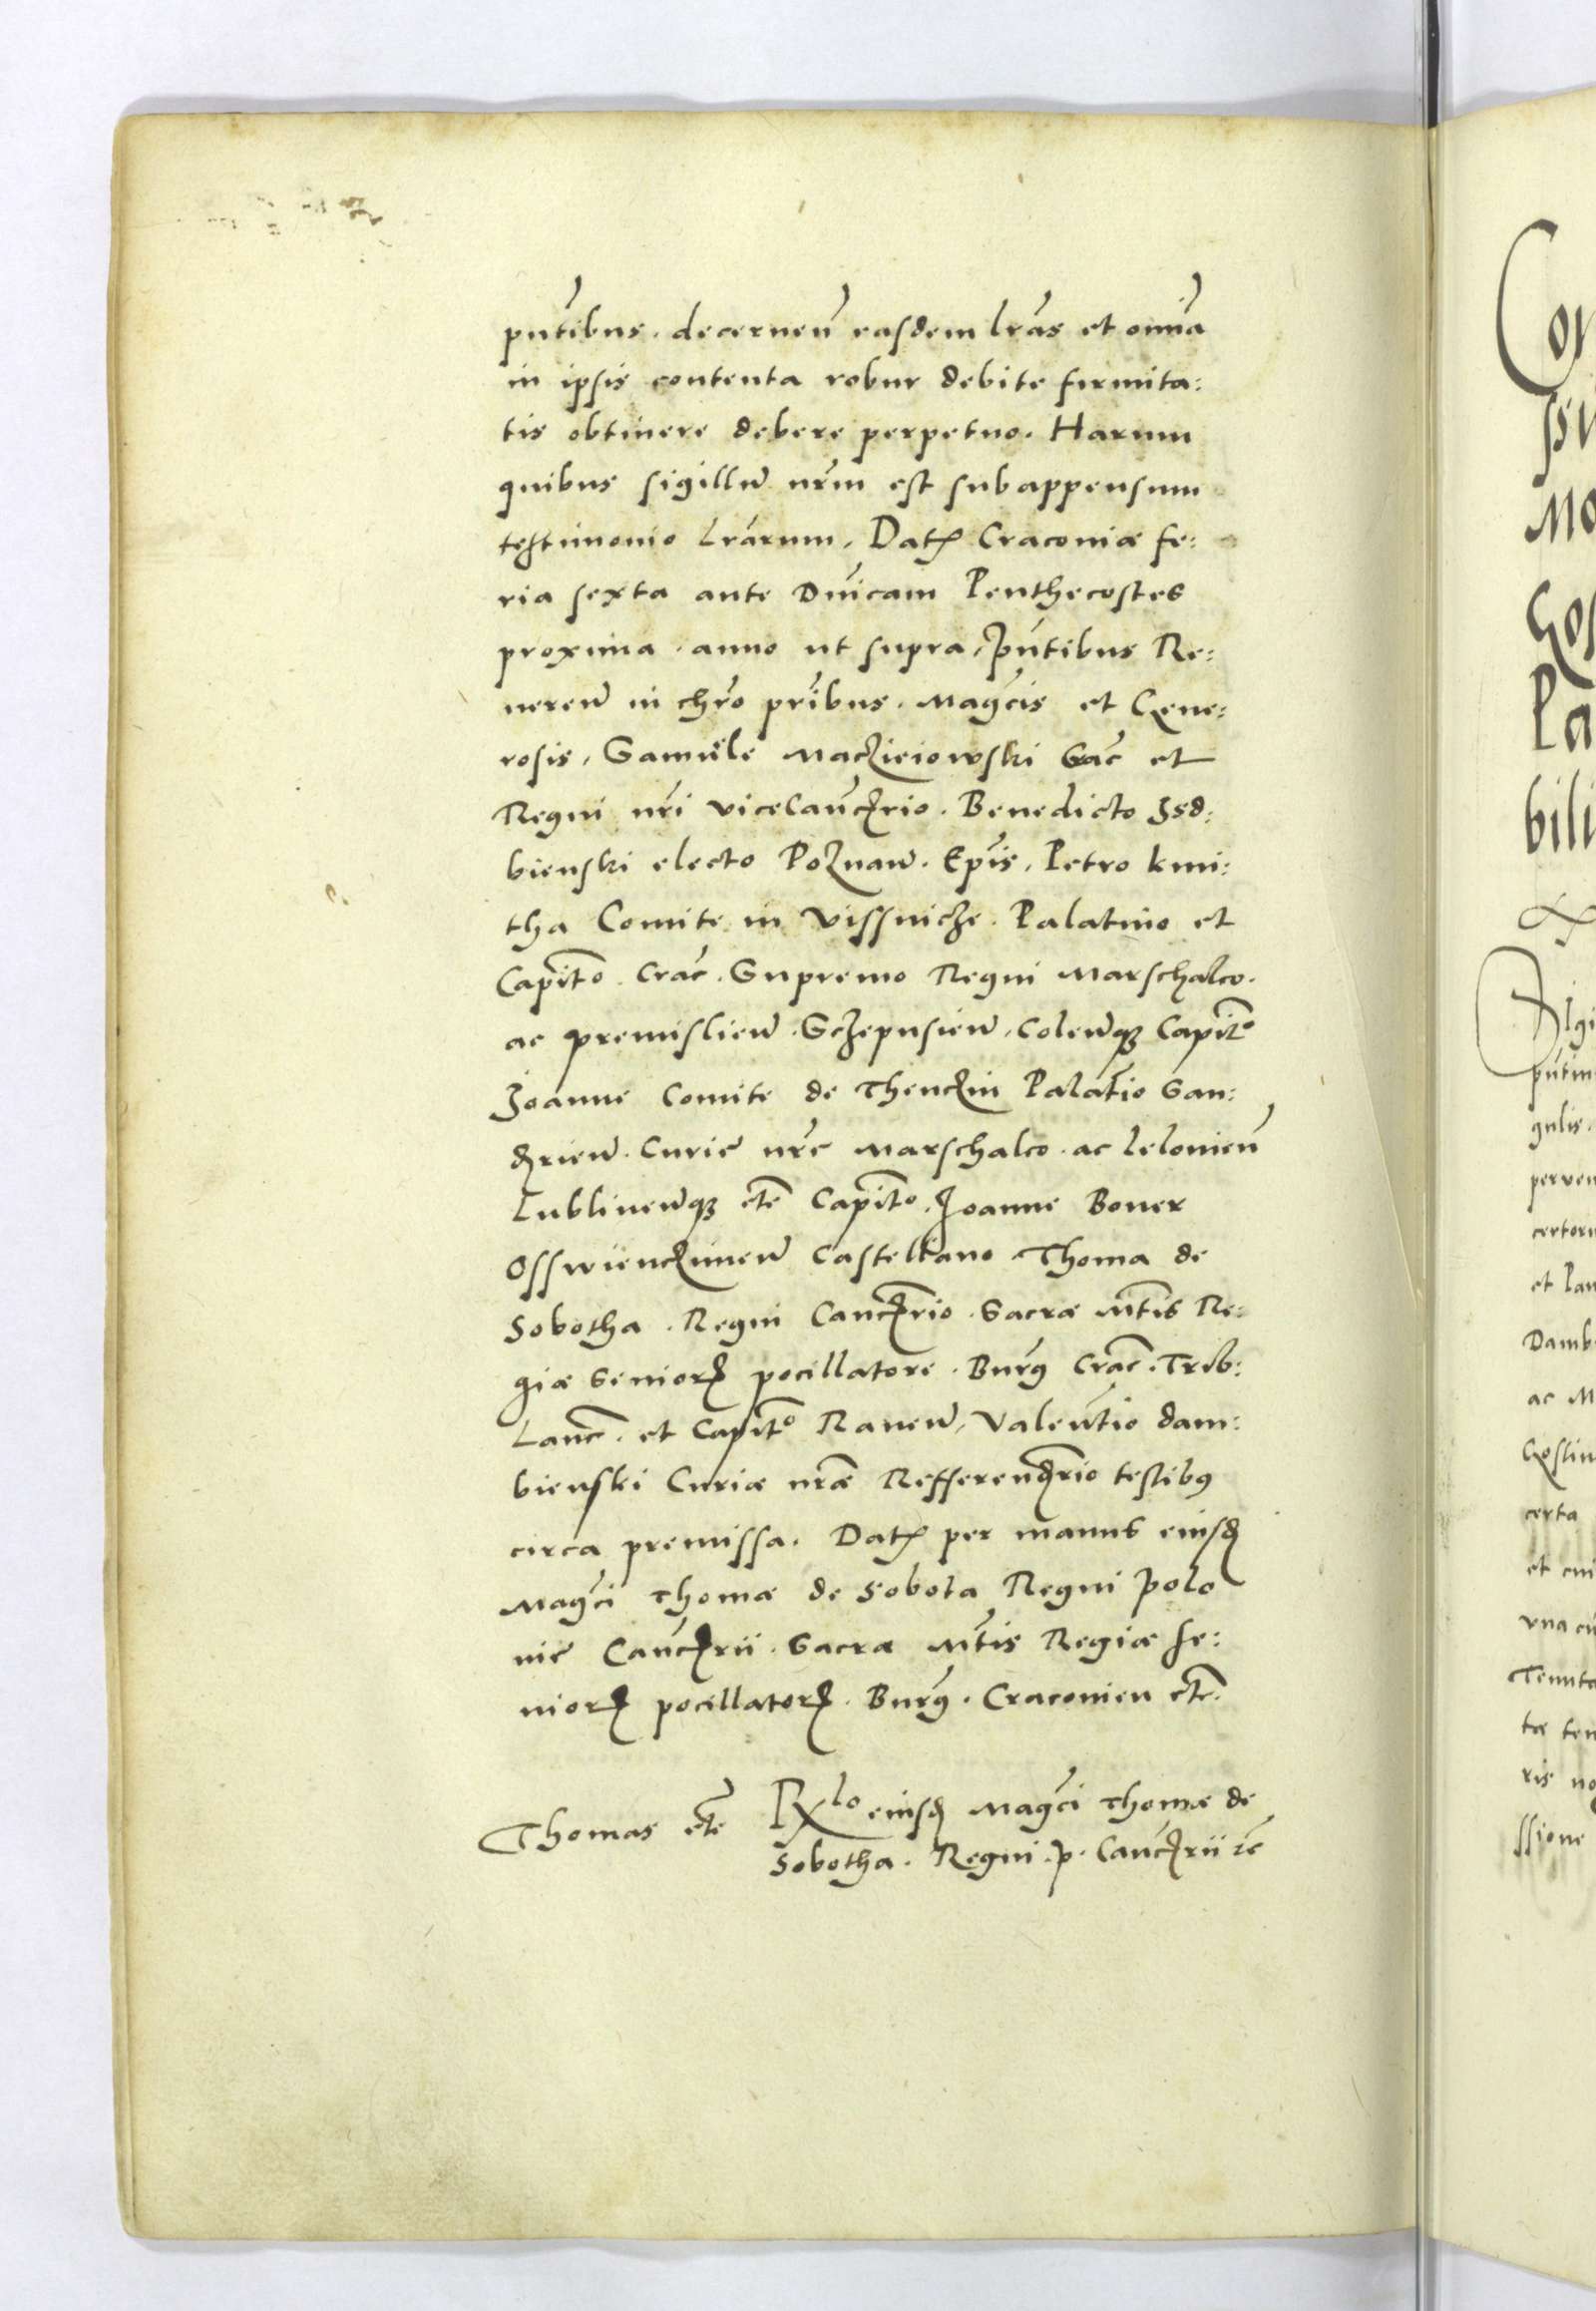 pn̄tibus. decernen̄ easdem lrās et om̄ia
in ipsis contenta robur debite firmita:
tis obtinere debere perpetuo. Harum
quibus sigillū nr̄m est subappensum
testimonio Lrārum. Datʒ Cracoviæ fe:
ria sexta ante Dnīcam Penthecostes
proxima. anno ut supra, pn̄tibus Re:
veren̄ in chrō prībus. Magcīs et Gene:
rosis, Samuële Macziejowski Crac̄ et
Regni nrī vicecanc̄rio. Benedicto Isd:
bienski electo Poznan̄. Epīs. Petro kmi:
tha Comite in Vissnicze. Palatino et
Capit̄o. Crac̄. Supremo Regni Marschalco.
ac premislien̄. Sczepusien̄. Colen̄qȝ Capit̄o
Joanne Comite de Thenczin Palat̄io San:
drien̄. Curiē nrē Marschalco. ac Lelovien̄
Lublinen̄qȝ etc̄ Capit̄o. Joanne Boner
Osswienczimen̄ Castellano Thoma de
Sobotha. Regni Canc̄rio. Sacræ Mt̄is Re:
giæ Seniorȝ pocillatore. Burḡ Crac̄. Trib:
Lanc̄. et Capit̄o Raven̄, Valent̄io dam:
bienski Curiæ nrǣ Refferend̄rio testibꝰ
circa premissa. Datʒ per manus eiusd̄
Magcī Thomæ de Sobota Regni Polo
niē Canc̄rii. Sacræ Mt̄is Regiæ se:
niorȝ pocillatorȝ. Burḡ. Cracovien etc̄.
Thomas etc̄
Rlo eiusd̄ Magcī Thomæ de
Sobotha. Regni. p. Canc̄rii rc̄
Cor
Mo
Pa
bili
gulis.
perven
certoru
et Pan
Damb
ac M
Goslin
certa
et cui
vna cū
Tenuta
ris no
ssione